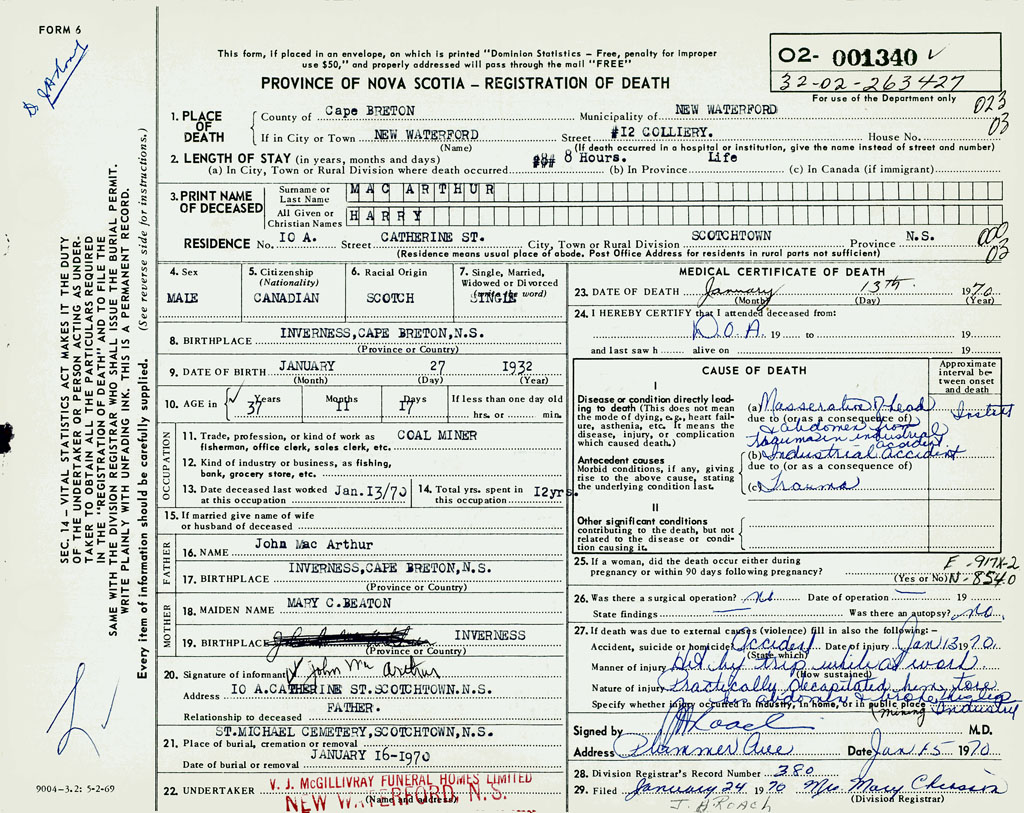 FORM 6
This form, if placed in an envelope, on which is printed "Dominion Statistics – Free, penalty for improper
use $50," and properly addressed will pass through the mail "FREE"
PROVINCE OF NOVA SCOTIA – REGISTRATION OF DEATH
02- 001340
32-02-263427
For use of the Department only
023
03
1. PLACE OF DEATH
County of Cape BRETON Municipality of NEW WATERFORD
If in City or Town NEW WATERFORD Street #12 COLLIERY. House No.
(Name) (If death occurred in a hospital or institution, give the name instead of street and number)
2. LENGTH OF STAY (in years, months and days) 8 Hours. Life
(a) In City, Town or Rural Division where death occurred (b) In Province (c) In Canada (if immigrant)
3. PRINT NAME OF DECEASED
Surname or Last Name MAC ARTHUR
All Given or Christian Names HARRY
RESIDENCE No. IO A. Street CATHERINE ST. City, Town or Rural Division SCOTCHTOWN Province N.S.
(Residence means usual place of abode. Post Office Address for residents in rural parts not sufficient)
000
03
4. Sex MALE
5. Citizenship (Nationality) CANADIAN
6. Racial Origin SCOTCH
7. Single, Married, Widowed or Divorced (write the word) SINGLE
8. BIRTHPLACE INVERNESS,CAPE BRETON,N.S.
(Province or Country)
9. DATE OF BIRTH JANUARY 27 1932
(Month) (Day) (Year)
10. AGE in 37 Years 11 Months 17 Days If less than one day
hrs. or min.
OCCUPATION
11. Trade, profession, or kind of work as COAL MINER
fisherman, office clerk, sales clerk, etc.
12. Kind of industry or business, as fishing,
bank, grocery store, etc.
13. Date deceased last worked at this occupation Jan.13/70
14. Total yrs. spent in this occupation 12yrs.
15. If married give name of wife
or husband of deceased
FATHER
16. NAME John Mac Arthur
17. BIRTHPLACE INVERNESS,CAPE BRETON,N.S.
(Province or Country)
MOTHER
18. MAIDEN NAME MARY C.BEATON
19. BIRTHPLACE INVERNESS
(Province or Country)
20. Signature of informant John Mc Arthur
Address IO A.CATHERINE ST.SCOTCHTOWN,N.S.
Relationship to deceased FATHER.
ST.MICHAEL CEMETERY,SCOTCHTOWN,N.S.
21. Place of burial, cremation or removal
Date of burial or removal JANUARY 16-1970
22. UNDERTAKER V. J. McGILLIVRAY FUNERAL HOMES LIMITED
NEW WATERFORD, N.S.
(Name and address)
MEDICAL CERTIFICATE OF DEATH
23. DATE OF DEATH January 13th 1970
(Month) (Day) (Year)
24. I HEREBY CERTIFY that I attended deceased from:
D.O.A. 19 to 19
and last saw h alive on 19
CAUSE OF DEATH
Approximate interval between onset and death
I
Disease or condition directly leading to death (This does not mean the mode of dying, e.g., heart failure, asthenia, etc. It means the disease, injury, or complication which caused death.)
(a) Masseration of head
due to (or as a consequence of)
& abdomen from
Traumasin industrial
accident
Antecedent causes
Morbid conditions, if any, giving rise to the above cause, stating the underlying condition last.
(b) Industrial Accident
due to (or as a consequence of)
(c) Trauma
II
Other significant conditions
contributing to the death, but not related to the disease or condition causing it.
25. If a woman, did the death occur either during
pregnancy or within 90 days following pregnancy? (Yes or No)
E-917X-2
N-8540
26. Was there a surgical operation? No Date of operation 19
State findings Was there an autopsy? No
27. If death was due to external causes (violence) fill in also the following:–
Accident, suicide or homicide Accident Date of injury Jan 13 1970
(State which)
Manner of injury Hit by trip while at work
(How sustained)
Nature of injury Practically decapitated him, tore
abdomen & broke
Specify whether injury occurred in industry, in home, or in public place Industry
(Mining)
Signed by JARoach M.D.
Address Plummer Ave Date Jan 15 1970
28. Division Registrar's Record Number 380
29. Filed January 24 1970 Mrs. Mary Chiasson
(Division Registrar)
J. A ROACH
SEC. 14 – VITAL STATISTICS ACT MAKES IT THE DUTY
OF THE UNDERTAKER OR PERSON ACTING AS UNDER-
TAKER TO OBTAIN ALL THE PARTICULARS REQUIRED
IN THE "REGISTRATION OF DEATH" AND TO FILE THE
SAME WITH THE DIVISION REGISTRAR WHO SHALL ISSUE THE BURIAL PERMIT.
WRITE PLAINLY WITH UNFADING INK. THIS IS A PERMANENT RECORD.
Every item of information should be carefully supplied. (See reverse side for instructions.)
9004-3.2: 5-2-69